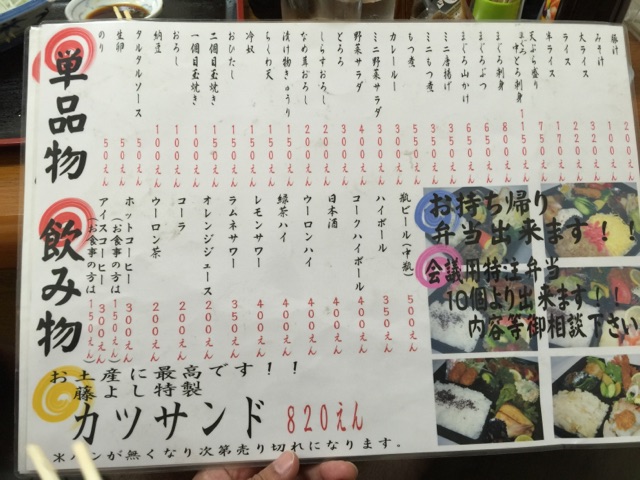 単品物
豚汁 200えん
みそ汁 100えん
大ライス 320えん
ライス 220えん
半ライス 170えん
天ぷら盛り 750えん
まぐろ中とろ刺身 1150えん
まぐろ刺身 800えん
まぐろぶつ 650えん
まぐろ山かけ 650えん
ミニ唐揚げ 350えん
ミニもつ煮 350えん
もつ煮 550えん
カレールー 300えん
ミニ野菜サラダ 300えん
野菜サラダ 400えん
とろろ 300えん
しらすおろし 200えん
なめ茸おろし 200えん
漬け物きゅうり 100えん
ちくわ天 150えん
冷奴 150えん
おひたし 150えん
二個目玉焼き 150えん
一個目玉焼き 100えん
おろし 100えん
納豆 100えん
タルタルソース 50えん
生卵 50えん
のり 50えん
飲み物
瓶ビール(中瓶) 500えん
ハイボール 350えん
コークハイボール 400えん
日本酒 400えん
ウーロンハイ 400えん
緑茶ハイ 400えん
レモンサワー 400えん
ラムネサワー 350えん
オレンジジュース 200えん
コーラ 200えん
ウーロン茶 200えん
ホットコーヒー 300えん
(お食事の方は150えん)
アイスコーヒー 300えん
(お食事の方は150えん)
お持ち帰り
弁当出来ます!!
会議用特注弁当
10個より出来ます!!
内容等御相談下さい
お土産に最高です!!
藤よし特製
カツサンド 820えん
※パンが無くなり次第売り切れになります。